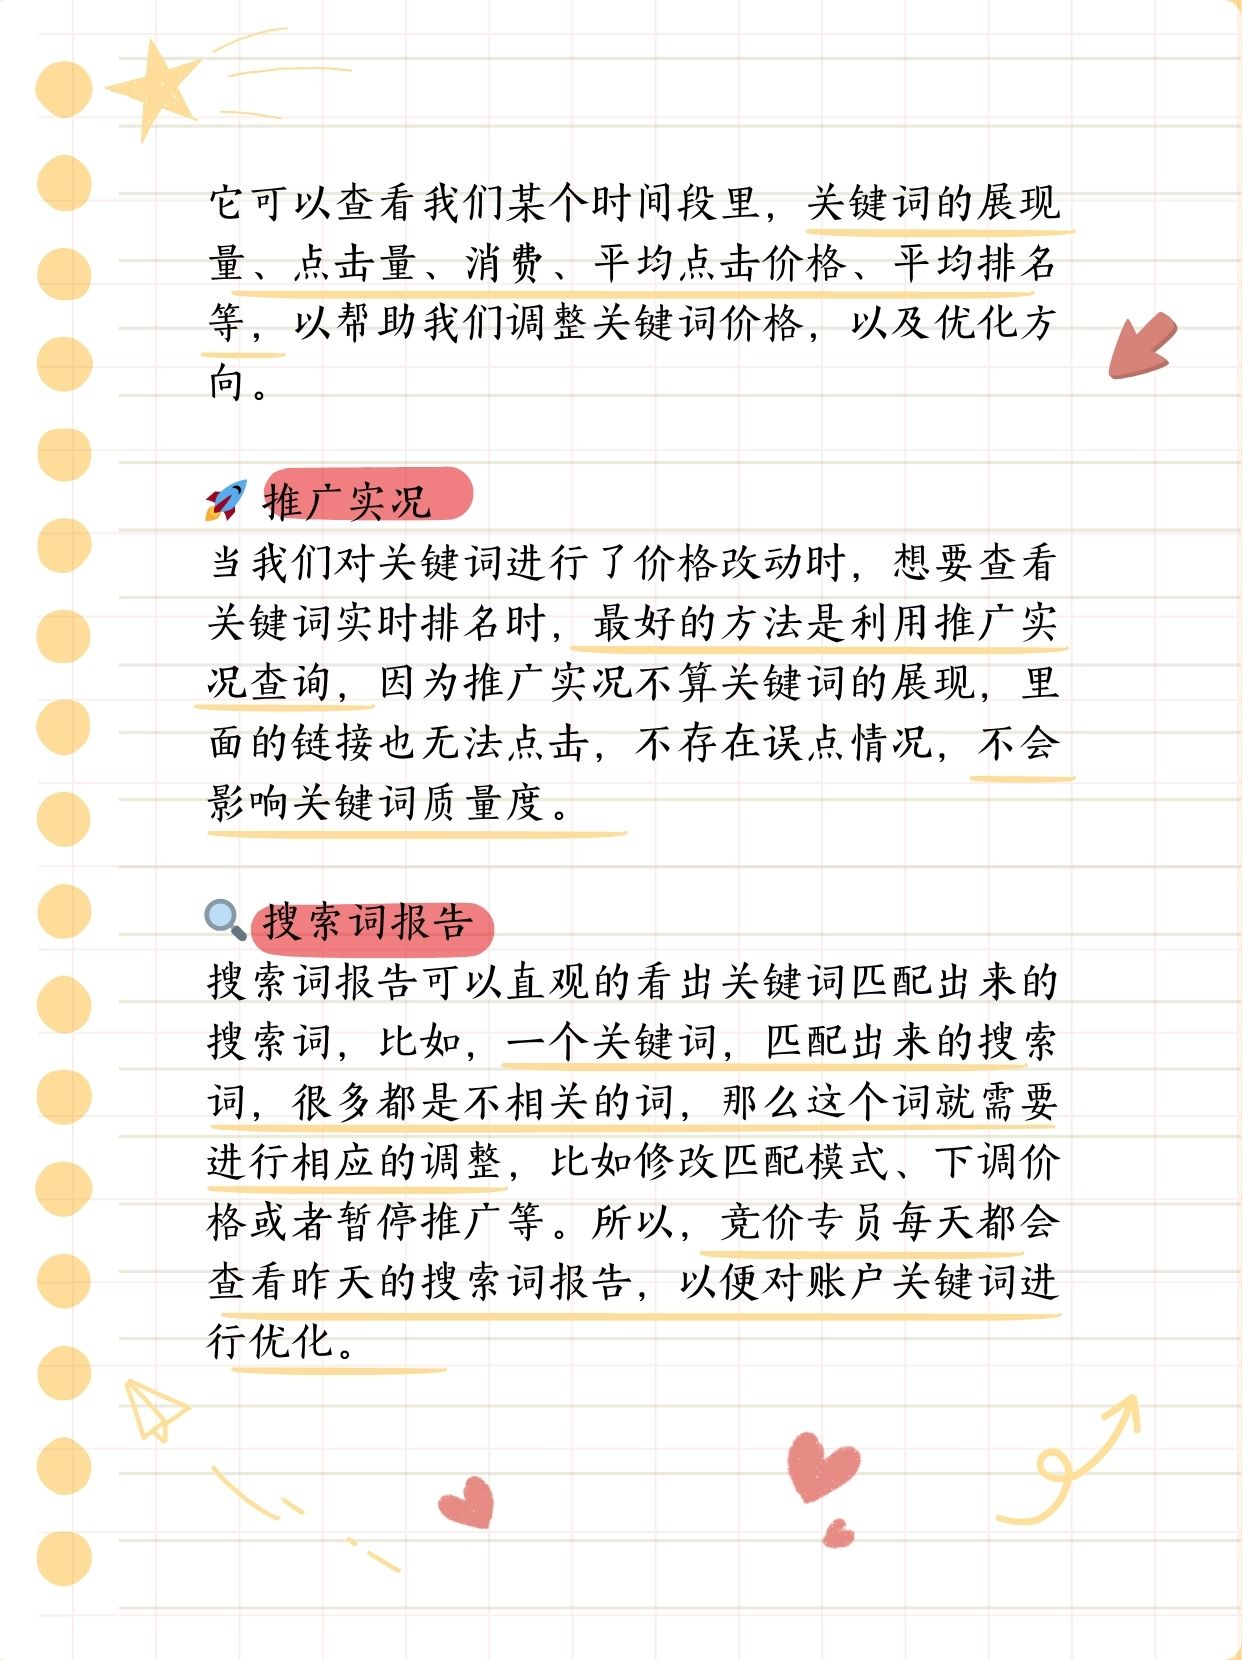 它可以查看我们某个时间段里，关键词的展现
量、点击量、消费、平均点击价格、平均排名
等，以帮助我们调整关键词价格，以及优化方
向。
推广实况
当我们对关键词进行了价格改动时，想要查看
关键词实时排名时，最好的方法是利用推广实
况查询，因为推广实况不算关键词的展现，里
面的链接也无法点击，不存在误点情况，不会
影响关键词质量度。
搜索词报告
搜索词报告可以直观的看出关键词匹配出来的
搜索词，比如，一个关键词，匹配出来的搜索
词，很多都是不相关的词，那么这个词就需要
进行相应的调整，比如修改匹配模式、下调价
格或者暂停推广等。所以，竞价专员每天都会
查看昨天的搜索词报告，以便对账户关键词进
行优化。